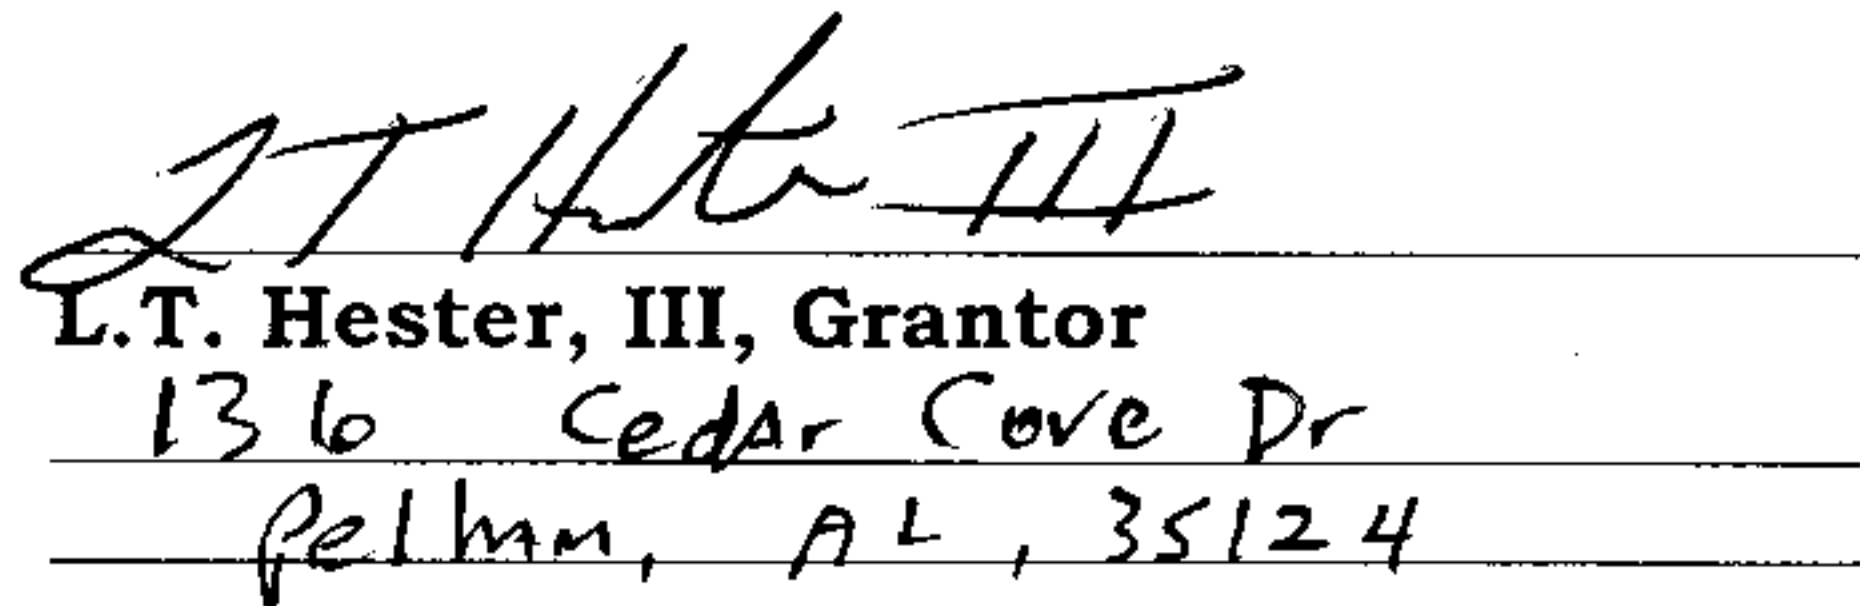 LT Hester III
L.T. Hester, III, Grantor
136 Cedar Cove Dr
Pelham, AL, 35124